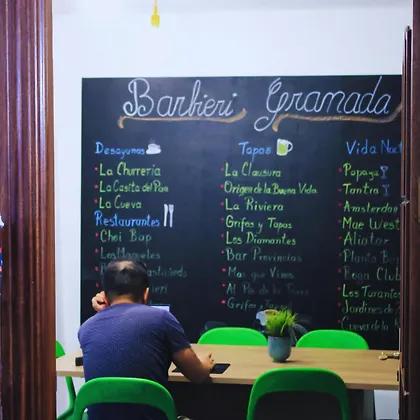 Barbieri Granada
Desayunos
La Churreria
La Casita del Pan
La Cueva
Restaurantes
Choi Bap
Los Manueles
Tapas
La Clausura
Origen de la Buena Vida
La Riviera
Grifos y Tapas
Los Diamantes
Bar Provincias
Mas que Vinos
Al Pie de la Torre
Grifos y
Vida Noct
Papaya
Tantra
Amsterdam
Mae West
Aliatar
Planta Baja
Boga Club
Los Turantos
Jardines de
Cueva de la